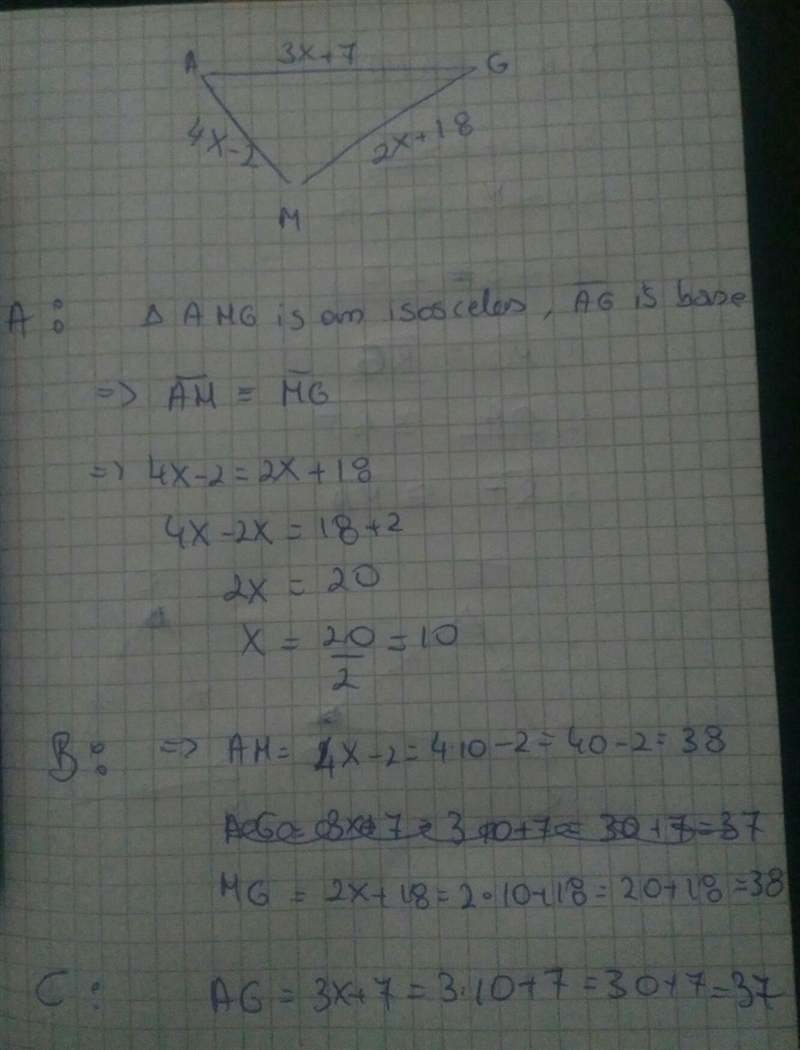 A 3x+7 G
4x-2 2x+18
M
A: Δ AMG is an isosceles, A̅G̅ is base
=> A̅M̅ = M̅G̅
=> 4x-2=2x+18
4x-2x=18+2
2x = 20
x = 20/2 = 10
B: => AM= 4x-2=4·10-2=40-2=38
AG= 3x+7=3·10+7=30+7=37
MG = 2x+18=2·10+18=20+18=38
C: AG = 3x+7=3·10+7=30+7=37